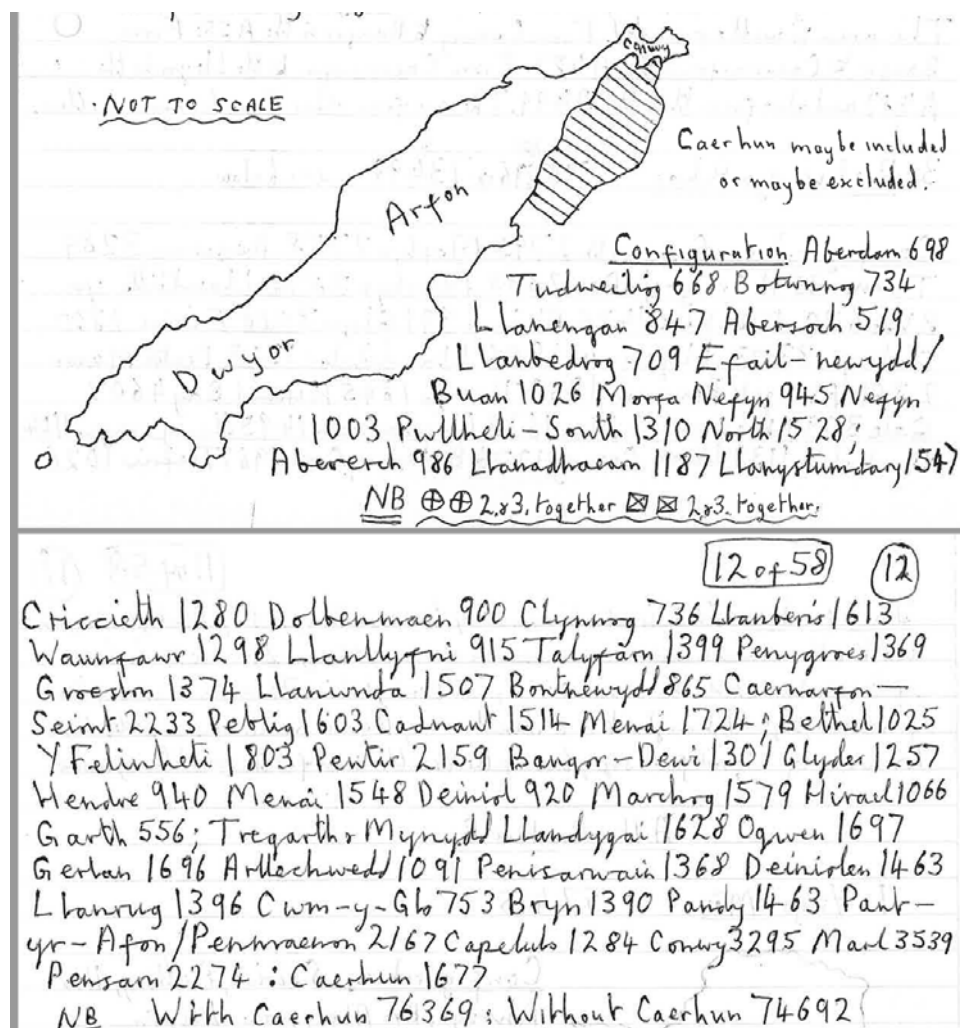 Conwy
NOT TO SCALE
Caerhun may be included
or maybe excluded.
Arfon
Dwyfor
Configuration Aberdaron 698
Tudweiliog 668 Botwnnog 734
Llanengan 847 Abersoch 519
Llanbedrog 709 Efail-newydd/
Buan 1026 Morfa Nefyn 945 Nefyn
1003 Pwllheli-South 1310 North 1528;
Abererch 986 Llanaelhaearn 1187 Llanystumdwy 1547
NB ⊕⊕ 2,&3, together ⊠ ⊠ 2&3, together,
12 of 58 12
Criccieth 1280 Dolbenmaen 900 Clynnog 736 Llanberis 1613
Waunfawr 1298 Llanllyfni 915 Talysarn 1399 Penygroes 1369
Groeslon 1374 Llanwnda 1507 Bontnewydd 865 Caernarfon-
Seiont 2233 Peblig 1603 Cadnant 1514 Menai 1724; Bethel 1025
Y Felinheli 1803 Pentir 2159 Bangor-Dewi 1301 Glyder 1257
Hendre 940 Menai 1548 Deiniol 920 Marchog 1579 Hirael 1066
Garth 556; Tregarth & Mynydd Llandygai 1628 Ogwen 1697
Gerlan 1696 Arllechwedd 1091 Penisarwain 1368 Deiniolen 1463
Llanrug 1396 Cwm-y-Glo 753 Bryn 1390 Pandy 1463 Pant-
yr-Afon/Penmaenan 2167 Capelulo 1284 Conwy 3295 Marl 3539
Pensarn 2274: Caerhun 1677
NB With Caerhun 76369; Without Caerhun 74692